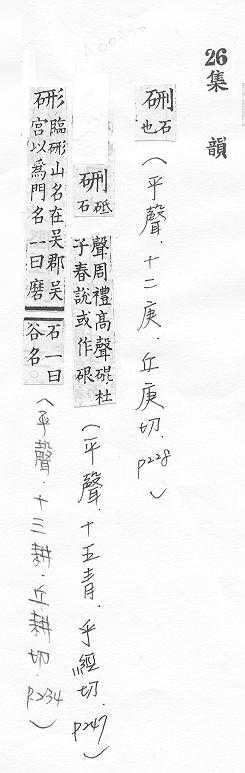 26集韻
硎 石也 (平聲．十二庚．丘庚切．P228)
硎 砥石
聲周禮高聲䃘杜
子春說或作硍 (平聲．十五青．乎經切．P247)
形臨硎山名在吳郡吳
硎宮以爲門名一曰磨
石一曰
谷名 (平聲．十三耕．丘耕切．P.234)